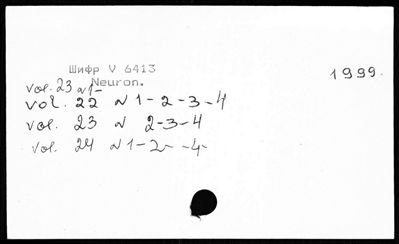 Шифр V 6413
1999.
Neuron.
vol. 23 N 1-
vol. 22 N 1-2-3-4
vol. 23 N 2-3-4
vol. 24 N 1-2- -4-